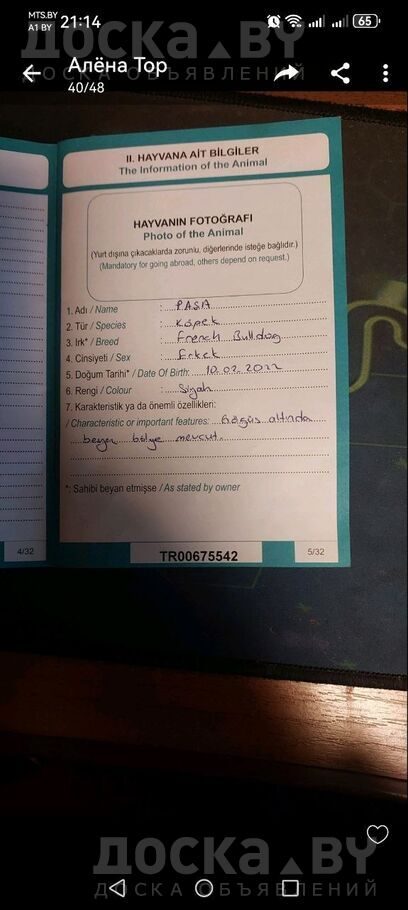 MTS.BY
A1 BY
21:14
65
Алёна Тор
40/48
доска.BY
ДОСКА ОБЪЯВЛЕНИЙ
II. HAYVANA AİT BİLGİLER
The Information of the Animal
HAYVANIN FOTOĞRAFI
Photo of the Animal
(Yurt dışına çıkacaklarda zorunlu, diğerlerinde isteğe bağlıdır.)
(Mandatory for going abroad, others depend on request.)
1. Adı / Name : PAŞA
2. Tür / Species : Köpek
3. Irk* / Breed : French Bulldog
4. Cinsiyeti / Sex : Erkek
5. Doğum Tarihi* / Date Of Birth: 10.02.2022
6. Rengi / Colour : Siyah
7. Karakteristik ya da önemli özellikleri:
/ Characteristic or important features: Göğüs altında
beyaz bölge mevcut.
*: Sahibi beyan etmişse / As stated by owner
4/32
TR00675542
5/32
доска.BY
ДОСКА ОБЪЯВЛЕНИЙ